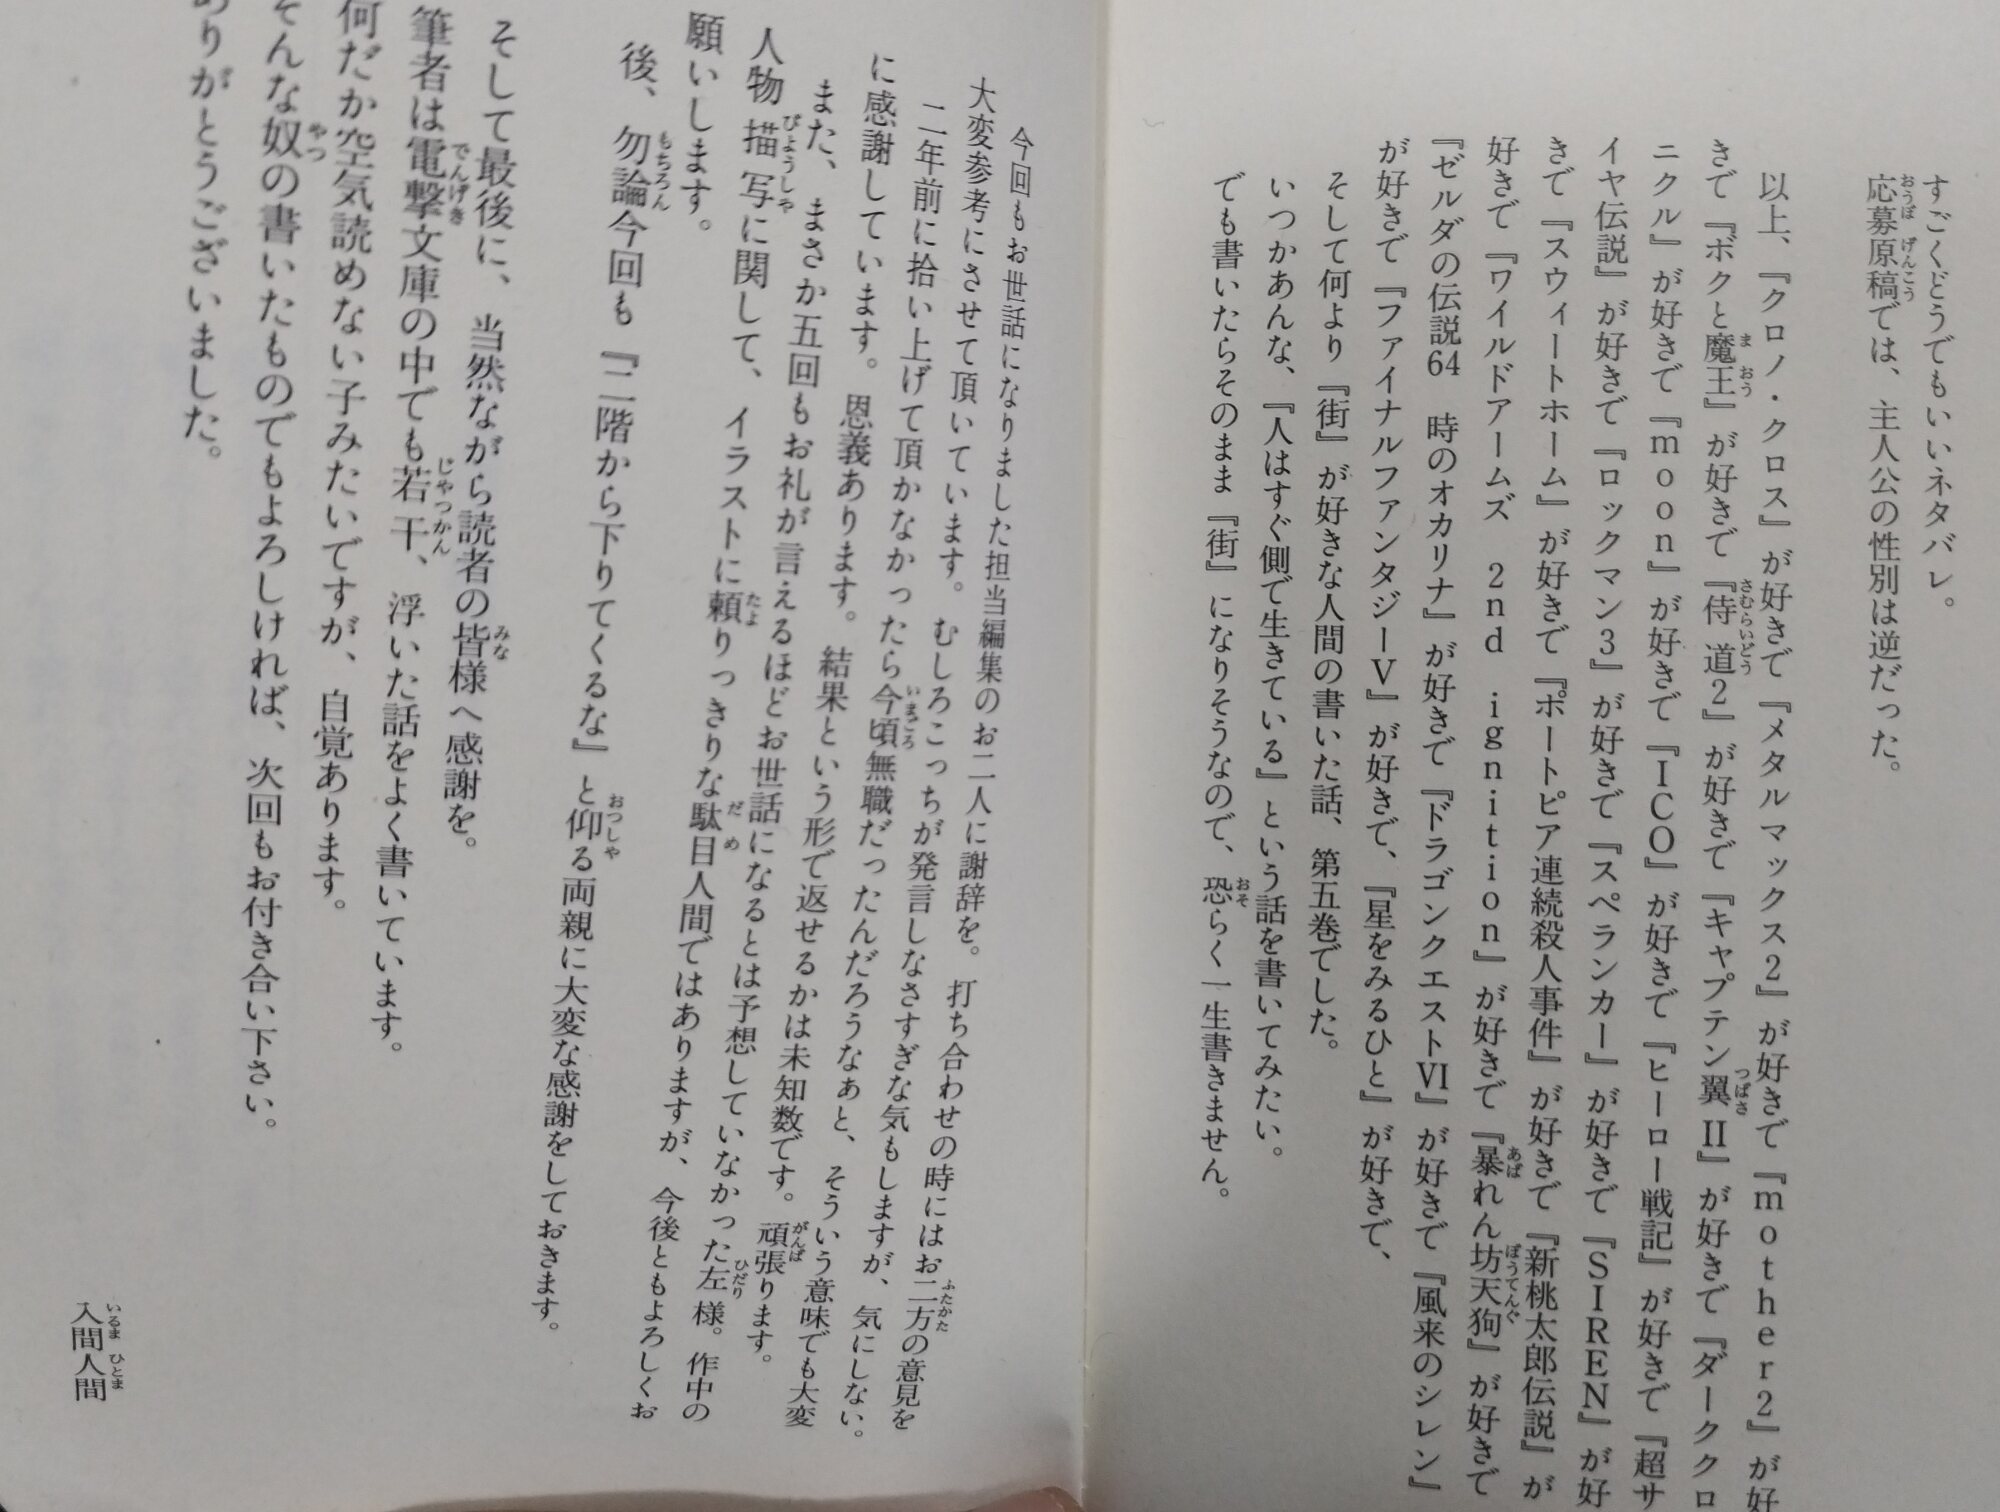 すごくどうでもいいネタバレ。
応募原稿では、主人公の性別は逆だった。
以上、『クロノ・クロス』が好きで『メタルマックス2』が好きで『mother2』が好
きで『ボクと魔王』が好きで『侍道2』が好きで『キャプテン翼II』が好きで『ダーククロ
ニクル』が好きで『moon』が好きで『ICO』が好きで『ヒーロー戦記』が好きで『超サ
イヤ伝説』が好きで『ロックマン3』が好きで『スペランカー』が好きで『SIREN』が好
きで『スウィートホーム』が好きで『ポートピア連続殺人事件』が好きで『新桃太郎伝説』が
好きで『ワイルドアームズ 2nd ignition』が好きで『暴れん坊天狗』が好きで
『ゼルダの伝説64 時のオカリナ』が好きで『ドラゴンクエストVI』が好きで『風来のシレン』
が好きで『ファイナルファンタジーV』が好きで、『星をみるひと』が好きで、
そして何より『街』が好きな人間の書いた話、第五巻でした。
いつかあんな、『人はすぐ側で生きている』という話を書いてみたい。
でも書いたらそのまま『街』になりそうなので、恐らく一生書きません。
今回もお世話になりました担当編集のお二人に謝辞を。打ち合わせの時にはお二方の意見を
大変参考にさせて頂いています。むしろこっちが発言しなさすぎな気もしますが、気にしない。
二年前に拾い上げて頂かなかったら今頃無職だったんだろうなぁと、そういう意味でも大変
に感謝しています。恩義あります。結果という形で返せるかは未知数です。頑張ります。
また、まさか五回もお礼が言えるほどお世話になるとは予想していなかった左様。作中の
人物描写に関して、イラストに頼りっきりな駄目人間ではありますが、今後ともよろしくお
願いします。
後、勿論今回も『二階から下りてくるな』と仰る両親に大変な感謝をしておきます。
そして最後に、当然ながら読者の皆様へ感謝を。
筆者は電撃文庫の中でも若干、浮いた話をよく書いています。
何だか空気読めない子みたいですが、自覚あります。
そんな奴の書いたものでもよろしければ、次回もお付き合い下さい。
ありがとうございました。
入間人間